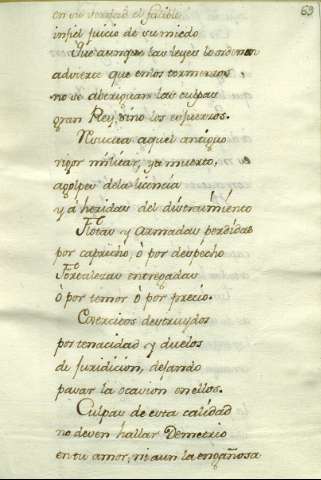 63
en su verdad el falible
infiel juicio de su miedo
Que aunque las leyes lo ordenan
advierte que en los tormentos
no se aberiguan las culpas
gran Rey, sino los esfuerzos.
Resucita aquel antiguo
rigor militar, ya muerto,
a golpes dela licencia
y á heridas del distraimiento
Flotas y armadas perdidas
por capricho, ó por despecho
Fortalezas entregadas
ó por temor ó por precio.
Exercitos destruydos
por tenacidad y duelos
de juridicion, dejando
pasar la ocasion en ellos.
Culpas de esta calidad
no deven hallar Demetrio
en tu amor, ni aun la engañosa